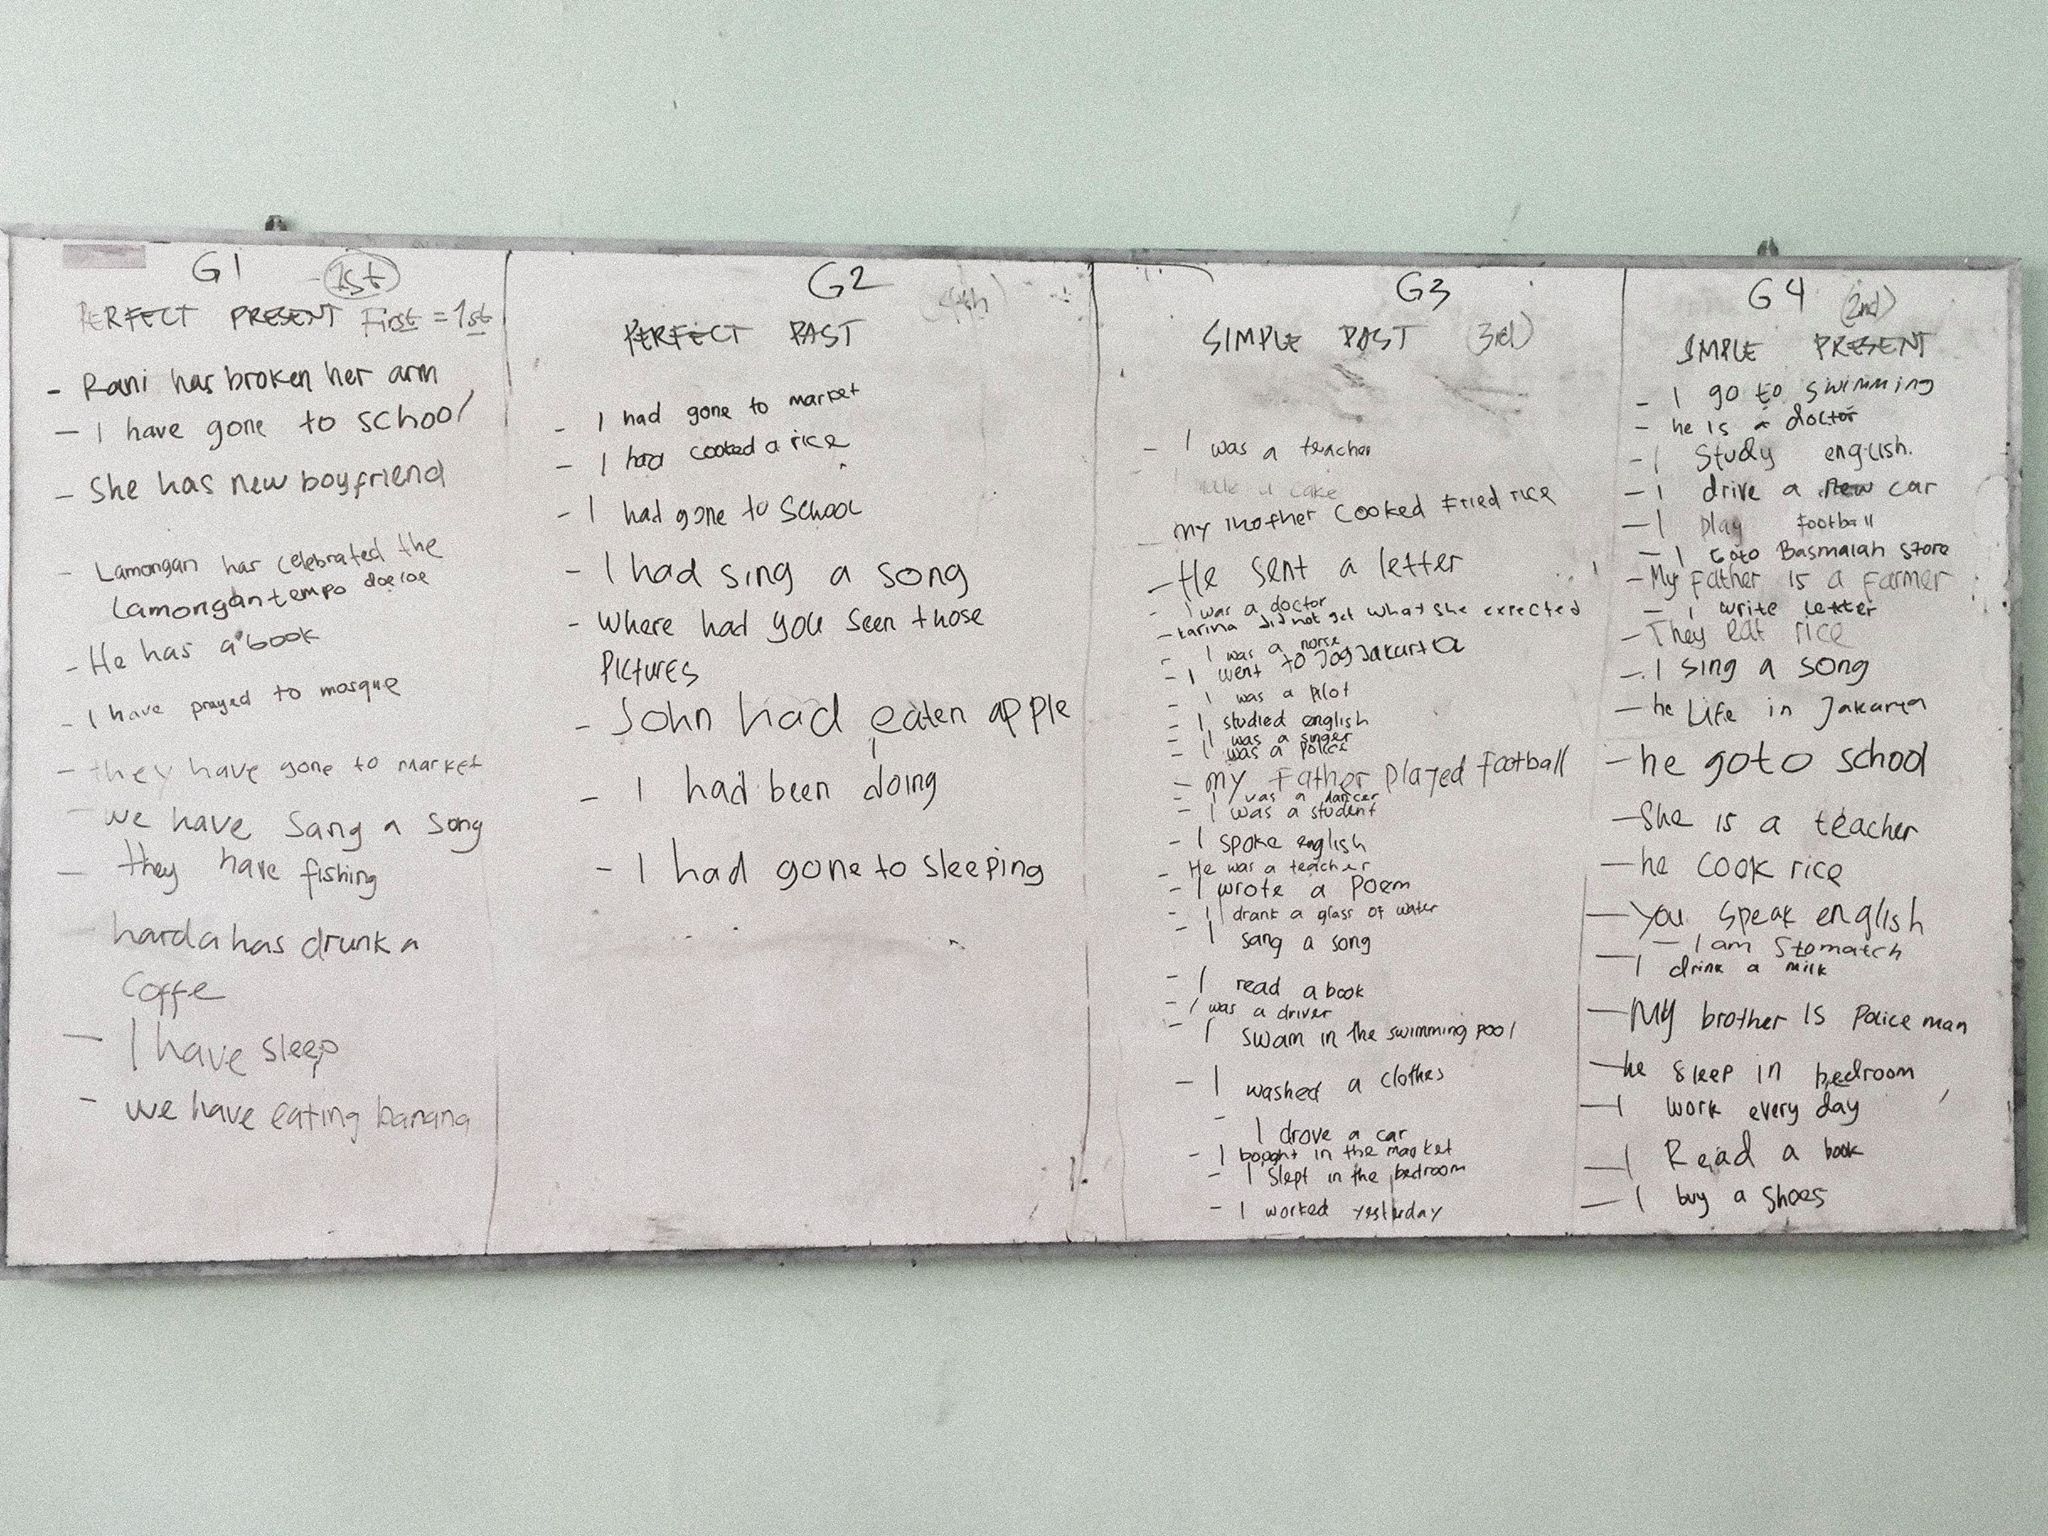 G1 1st
PERFECT PRESENT First = 1st
- Rani has broken her arm
- I have gone to school
- She has new boyfriend
- Lamongan has celebrated the
Lamongan tempo doeloe
- He has a book
- I have prayed to mosque
- they have gone to market
- we have sang a song
- they have fishing
harda has drunk a
coffe
- I have sleep
- we have eating banana
G2 (4th)
PERFECT PAST
- I had gone to market
- I had cooked a rice
- I had gone to school
- I had sing a song
- Where had you seen those
Pictures
- John had eaten apple
- I had been doing
- I had gone to sleeping
G3
SIMPLE PAST (3rd)
- I was a teacher
a cake
- my mother cooked fried rice
- He sent a letter
- I was a doctor
- karina did not get what she expected
- I was a norse
- I went to Jogjakarta
- I was a pilot
- I studied english
- I was a singer
- I was a police
- my Father played football
- I was a dancer
- I was a student
- I spoke english
- He was a teacher
- I wrote a poem
- I drank a glass of water
- I sang a song
- I read a book
- I was a driver
- I swam in the swimming pool
- I washed a clothes
- I drove a car
- I bought in the market
- I slept in the bedroom
- I worked yesterday
G4 (2nd)
SIMPLE PRESENT
- I go to swimming
- he is a doctor
- I study english.
- I drive a new car
- I play football
- I goto Basmalah store
- My father is a farmer
- I write letter
- They eat rice
- I sing a song
- he Life in Jakarta
- he goto school
- She is a teacher
- he cook rice
- You speak english
- I am Stomatch
- I drink a milk
- My brother is police man
- he sleep in bedroom
- I work every day
- I Read a book
- I buy a shoes